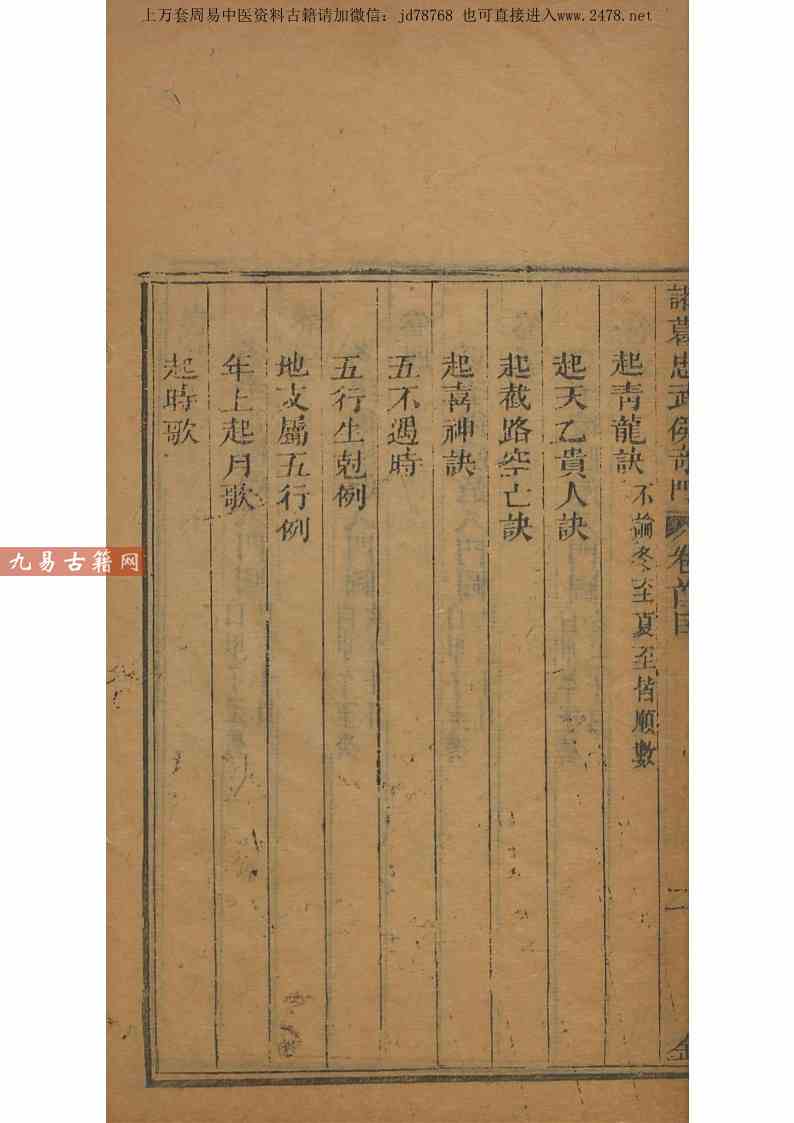 上万套周易中医资料古籍请加微信：jd78768 也可直接进入www.2478.net
諸葛忠武侯奇門 卷首目
二
起青龍訣 不論冬至夏至皆順數
起天乙貴人訣
起截路空亡訣
起喜神訣
五不遇時
五行生尅例
地支屬五行例
年上起月歌
起時歌
九易古籍网